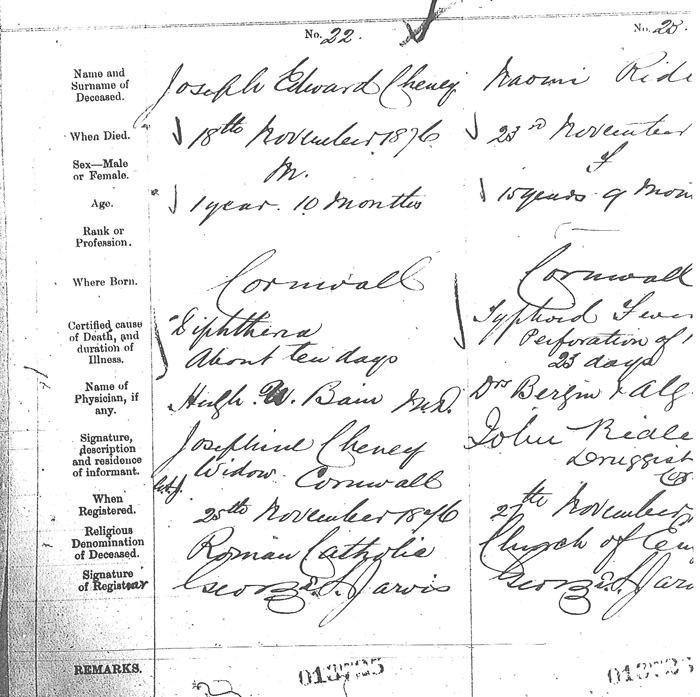 No. 22.
No. 25.
Name and Surname of Deceased.
Joseph Edward Cheney
Naomi Ride
When Died.
18th November 1876
23rd November
Sex—Male or Female.
M.
F
Age.
1 year. 10 Months
15 years 9 Mon
Rank or Profession.
Where Born.
Cornwall
Cornwall
Certified cause of Death, and duration of Illness.
Diphtheria
About ten days
Typhoid Fever
Perforation of
23 days
Name of Physician, if any.
Hugh W. Bain M.D.
Drs Bergin & Alg
Signature, description and residence of informant.
Josephine Cheney
Widow Cornwall
John Ridle
Druggist
Co
When Registered.
25th November 1876
27th November
Religious Denomination of Deceased.
Roman Catholic
Church of En
Signature of Registrar
George S. Jarvis
George S. Jarv
REMARKS.
013725